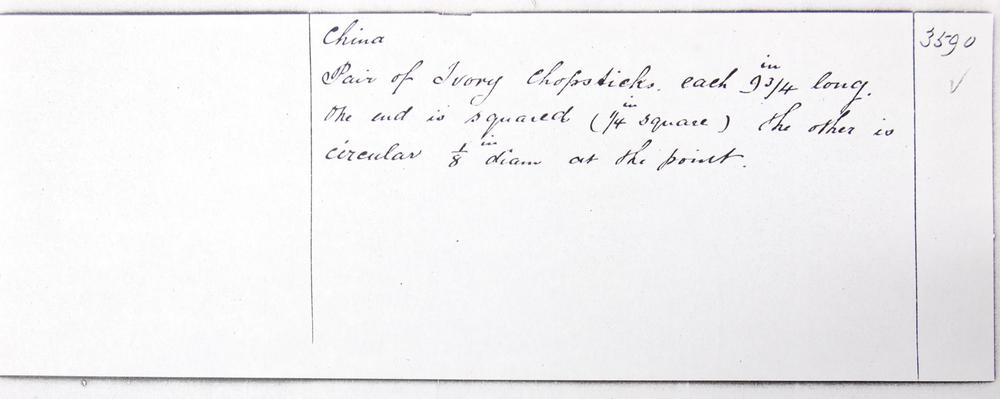 China
3590
Pair of Ivory Chopsticks. each 9 3/4 in long.
One end is squared (1/4 in square) the other is
circular 1/8 in diam at the point.